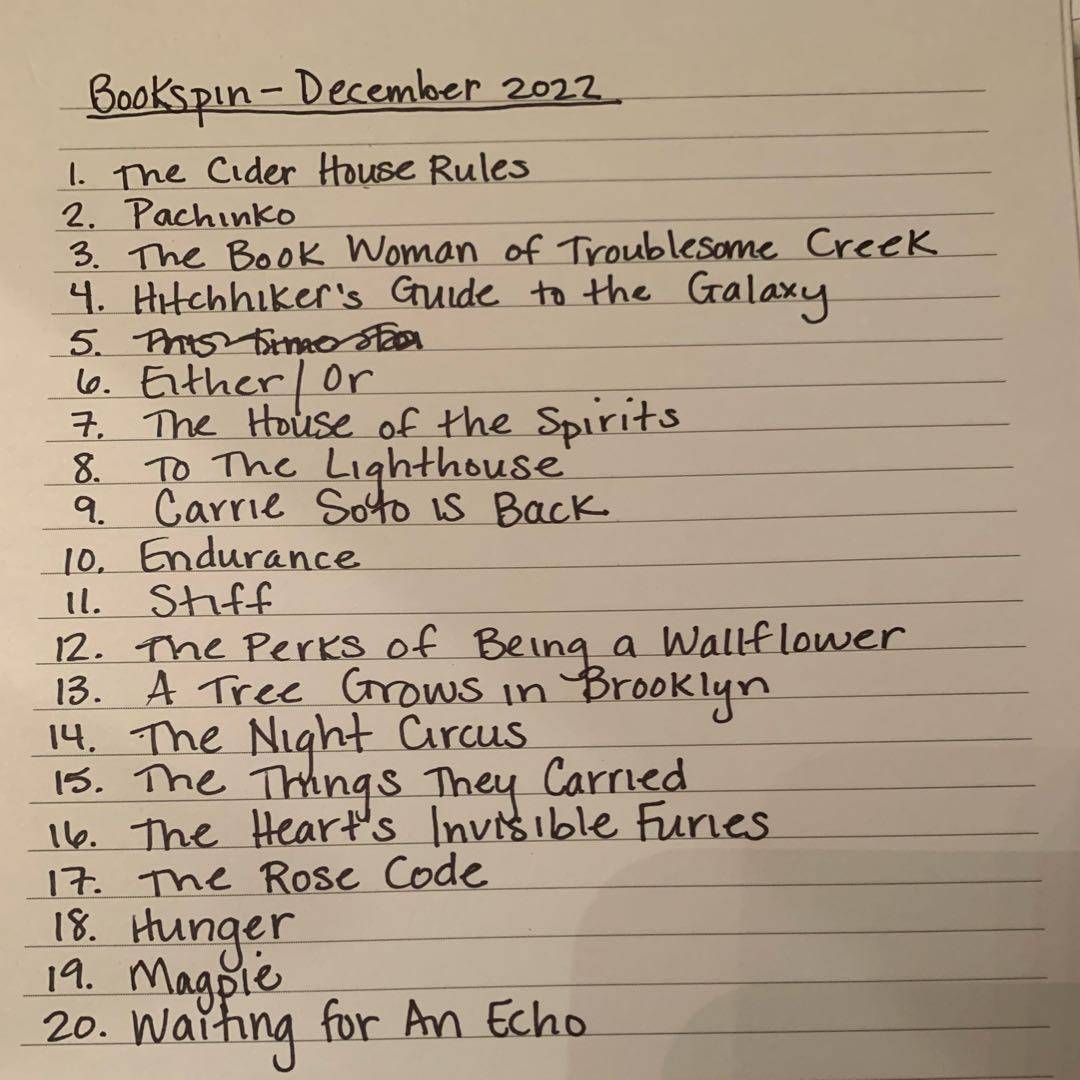 Bookspin - December 2022
1. The Cider House Rules
2. Pachinko
3. The Book Woman of Troublesome Creek
4. Hitchhiker's Guide to the Galaxy
5.
6. Either/Or
7. The House of the Spirits
8. To The Lighthouse
9. Carrie Soto is Back
10. Endurance
11. Stiff
12. The Perks of Being a Wallflower
13. A Tree Grows in Brooklyn
14. The Night Circus
15. The Things They Carried
16. The Heart's Invisible Furies
17. The Rose Code
18. Hunger
19. Magpie
20. Waiting for An Echo